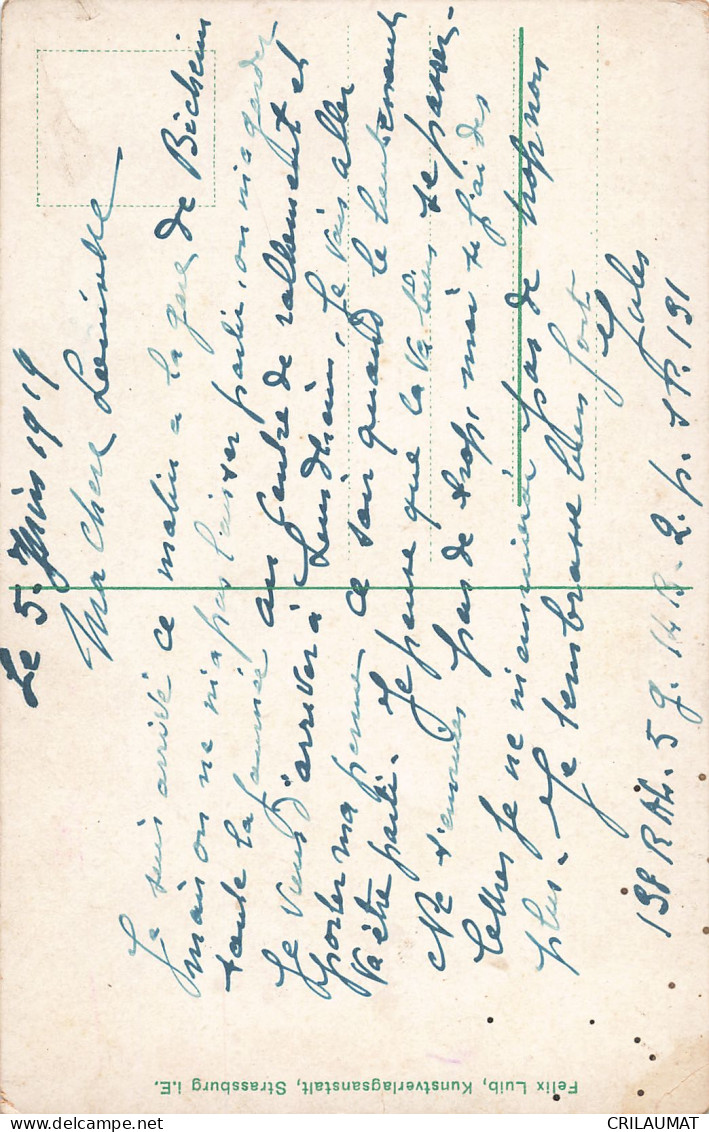 Le 5 Juin 1919
Ma chère
Je suis arrivé ce matin a la gare de Bicheim
mais on ne m'a pas laisser partir, on m'a garder
toute la journée au centre de ralliement et
Je viens d'arriver à Lendsheim, Je vais aller
porter ma perme ce soir quand le lieutenant
va être parti. Je pense que la va bien se passer.
Ne t'ennuies pas de trop, moi si j'ai des
lettres Je ne m'ennuierai pas de trop non
plus. Je t'embrasse bien fort
Jules
138 R Al. 5 g. 14 B. 2. p. S P. 131
Felix Luib, Kunstverlagsanstalt, Strassburg i.E.
CRILAUMAT